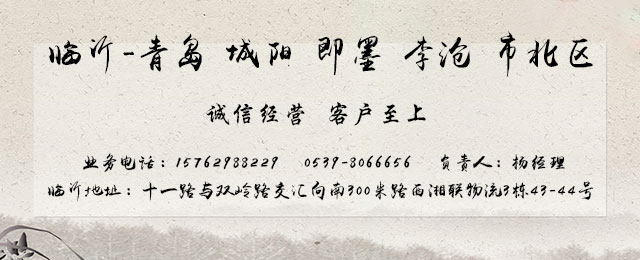 临沂-青岛 城阳 即墨 李沧 市北区
诚信经营 客户至上
业务电话：15762983229 0539-8066656 负责人：杨经理
临沂地址：十一路与双岭路交汇向南300米路西湘联物流3栋43-44号